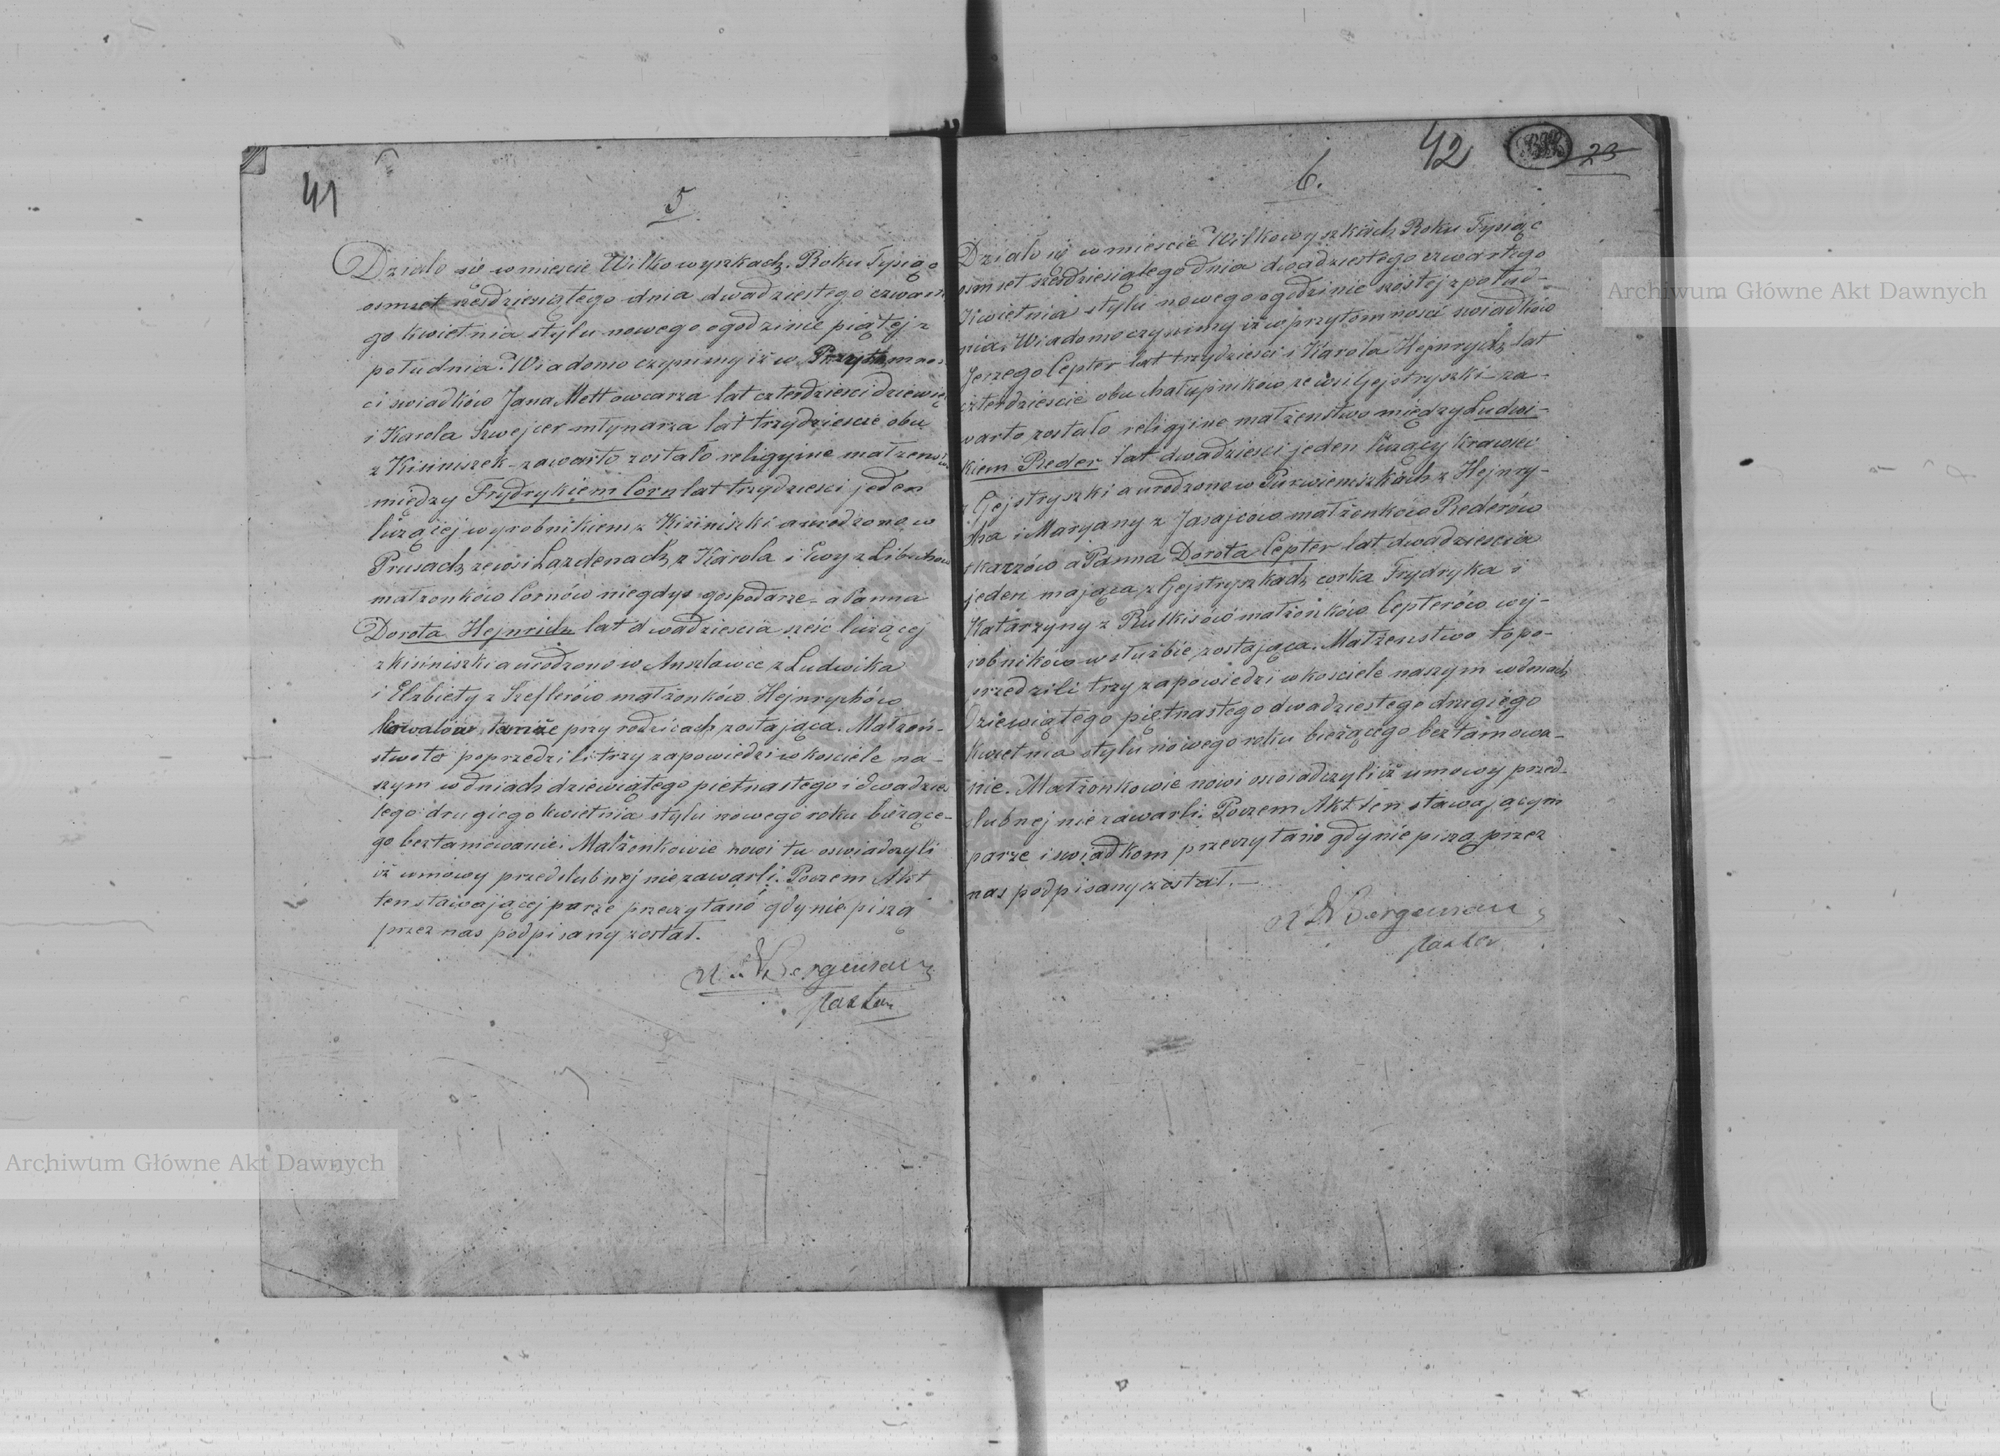 41
5
Działo się w mieście Wilkowyszkach. Roku Tysiąc
osmset sześdziesiątego dnia dwadziestego czwarte
go kwietnia stylu nowego o godzinie piątej z
południa. Wiadomo czynimy iż w Przytomnos
ci swiadków Jana Mett owcarza lat czterdzieści dziewięć
i Karola Szwejcer młynarza lat trzydziescie obu
z Kisiniszek zawarto zostało religyjne małżenstwo
między Frydrykiem Corn lat trzydziesci jeden
liczącej wyrobnikiem z Kisiniszki a urodzono w
Prusach ze wsi Lazdenach z Karola i Ewy z
małżonków Cornów niegdys gospodarze a Panna
Dorota Hejnrich lat dwadziescia sześć liczącej
z Kisiniszki a urodzono w Anszlawce z Ludwika
i Elzbiety z Szeflerów małżonków Hejnrychów
kowalów tamże przy rodzicach zostająca. Małżeń-
stwo to poprzedzili trzy zapowiedzi w kosciele na-
szym w dniach dziewiątego piętnastego i dwadzies
tego drugiego kwietnia stylu nowego roku bieżące-
go beztamowanie. Małżonkowie nowi tu oswiadczyli
iż umowy przedslubnej niezawarli. Poczem Akt
ten stawającej parze przeczytano gdy nie piszą
przez nas podpisany został.
Bergmann
Pastor
42
23
6.
Działo się w miescie Wilkowyszkach Roku Tysiąc
osmset sześdziesiątego dnia dwadziestego czwartego
Kwietnia stylu nowego o godzinie szóstej z połud-
nia. Wiadomo czynimy iż w przytomnosci swiadków
Jerzego Cepter lat trzydziesci i Karola Hejnrych lat
czterdziescie obu chałupników ze wsi Gejstryszki za-
warto zostało religyjne małżenstwo między Ludwi-
kiem Reder lat dwadziesci jeden liczący krawiec
z Gejstryszki a urodzono w Purwieniszkach z Hejnry-
cha i Maryany z małżonków Rederów
a Panna Dorota Cepter lat dwadziescia
jeden mająca z Gejstryszkach corka Frydryka i
Katarzyny z Rutkisów małżonków Cepterów wy-
robników w służbie zostająca. Małżenstwo to po-
przedzili trzy zapowiedzi w kosciele naszym w dniach
Dziewiątego piętnastego dwadziestego drugiego
kwietnia stylu nowego roku bieżącego beztamowa-
nie. Małżonkowie nowi oswiadczyli iż umowy przed-
slubnej niezawarli. Poczem Akt ten stawającym
parze i swiadkom przeczytano gdy nie piszą przez
nas podpisany został.
Bergmann
Pastor
Archiwum Główne Akt Dawnych
Archiwum Główne Akt Dawnych